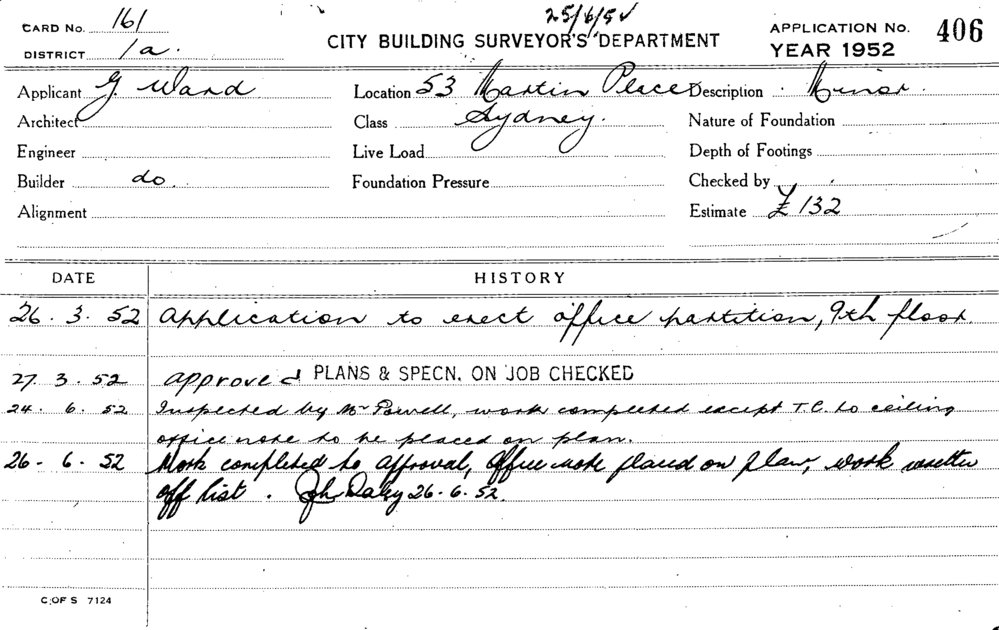 25/6/52
CARD No. 161
DISTRICT 1a.
CITY BUILDING SURVEYOR'S DEPARTMENT
APPLICATION No. 406
YEAR 1952
Applicant G. Ward
Location 53 Martin Place
Description Minor.
Architect
Class Sydney.
Nature of Foundation
Engineer
Live Load
Depth of Footings
Builder do
Foundation Pressure
Checked by
Alignment
Estimate £132
DATE HISTORY
26. 3. 52 Application to erect office partition, 9th floor.
27. 3. 52 Approved PLANS & SPECN. ON JOB CHECKED
24. 6. 52 Inspected by Mr Powell, work completed except T.C. to ceiling
office note to be placed on plan.
26 - 6. 52 Work completed to approval, Office note placed on plan, work
off list. Daley 26. 6. 52.
C. OF S 7124